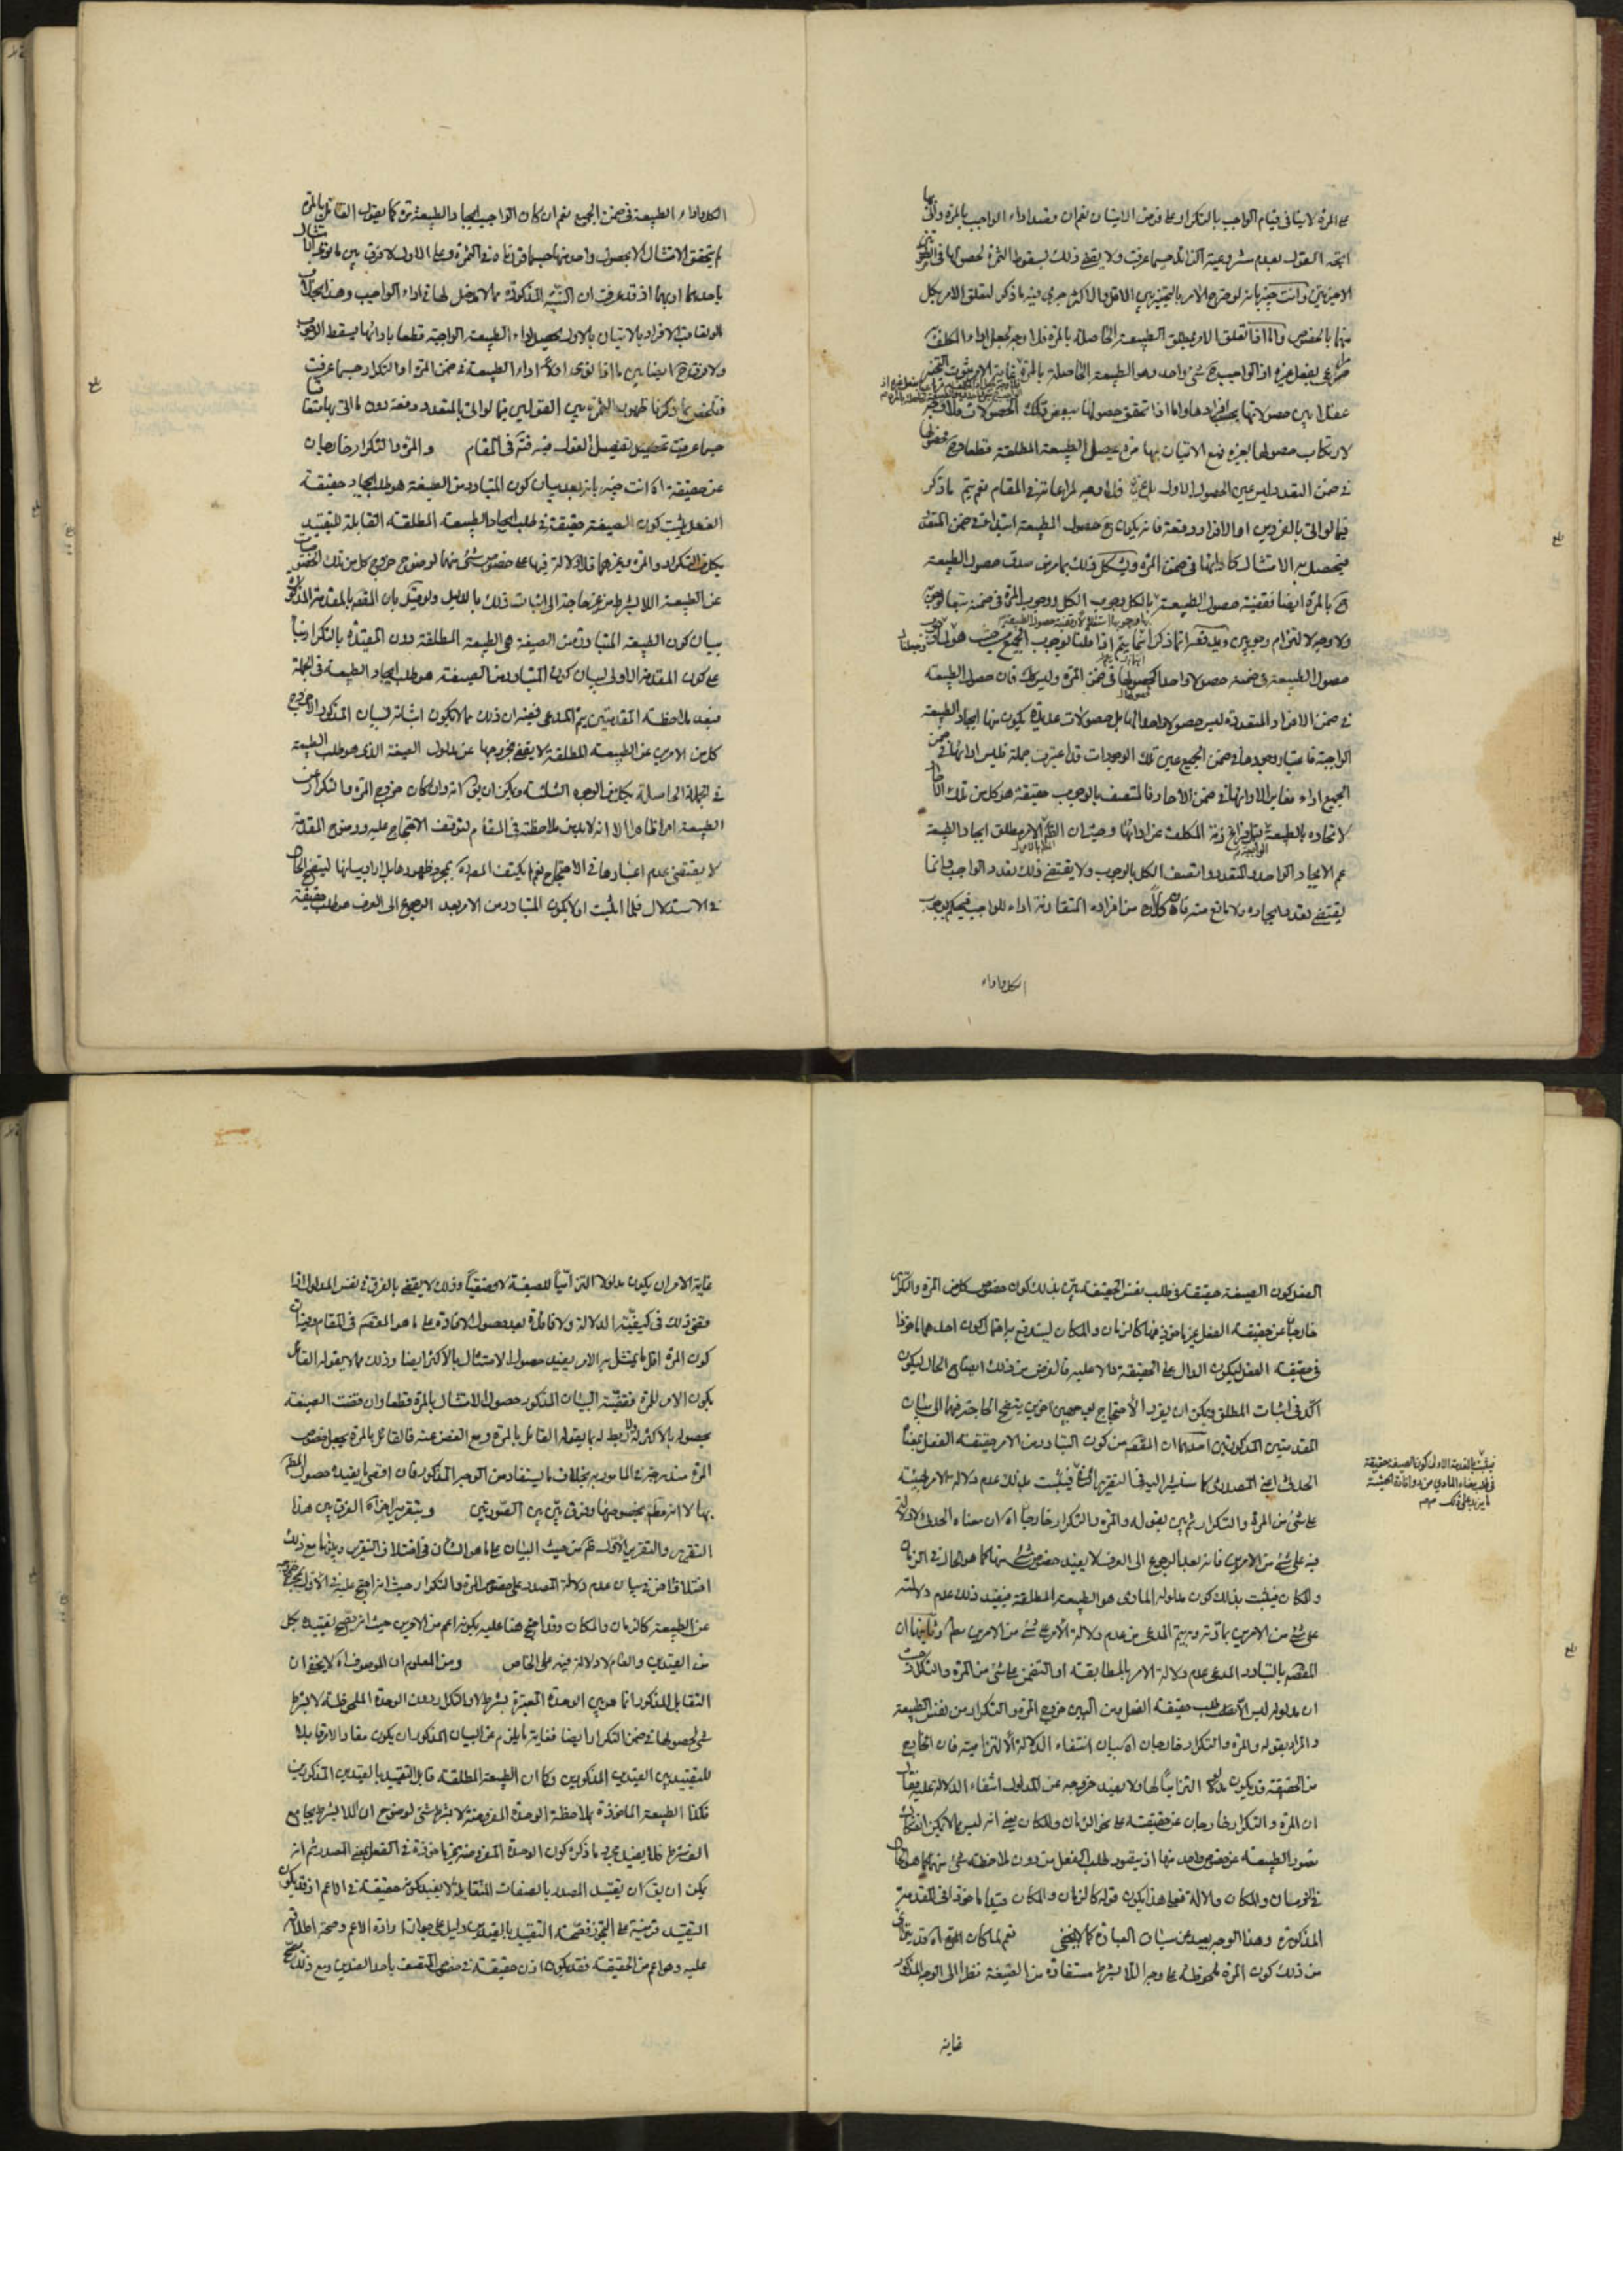 على المرة لا ينافى قيام الواجب بالتكرار على فرض الاتيان نعم ان قصد اداء الواجب بالمرة
اتجه القول بعدم مشروعية الزائد حسبما عرفت ولا يقضى ذلك بسقوط الثمرة لحصولها فى
الاخيرتين وانت خبير بانه لو صرح الامر بالتخيير بين الاقل والاكثر جرى فيه ما ذكر لتعلق الامر بكل
منهما بالخصوص واما اذا تعلق الامر بمطلق الطبيعة الحاصلة بالمرة فلا وجه لجعل اداء المكلف
اذ الواجب ح شئ واحد وهو الطبيعة الحاصلة بالمرة غاية الامر ثبوت التخيير
عقلا بين حصولاتها بحسب افرادها واما اذا تحقق حصولها ببعض تلك الحصولات فلا وجه
لارتكاب حصولها بغيره فمع الاتيان بها مرة يحصل الطبيعة المطلقة قطعا
فى ضمن التعدد ليس عين الحصول الاول فلا وجه لمراعاته فى المقام نعم يتم ما ذكر
فيما لو اتى بالفردين او الافراد دفعة فانه يكون ح حصول الطبيعة ابتداء فى ضمن المتعدد
فيحصل به الامتثال كادائها فى ضمن المرة ويشكل ذلك بما مر من سلف حصول الطبيعة
ح بالمرة ايضا فقضية حصول الطبيعة بالكل وجوب الكل ووجوب المرة فى ضمنه تبعا
ولا وجه لالتزام وجوبين ويدفعه ان ما ذكر انما يتم اذا قلنا بوجوب الجميع من حيث هو
حصول الطبيعة فى ضمنه حصولا واحدا كحصولها فى ضمن المرة وليس كك فان حصول الطبيعة
فى ضمن الافراد المتعددة ليس حصولا واحدا لها بل حصولات عديدة يكون منها ايجاد الطبيعة
الواجبة فاعتبار وجودها فى ضمن الجميع عين تلك الوجودات قد اعتبرت جملة فليس اداؤها فى ضمن
الجميع اداء مغايرا لادائها فى ضمن الآحاد فالمتصف بالوجوب حقيقة هو كل من تلك الآحاد
لاتحاده بالطبيعة فيفرغ ذمة المكلف عن ادائها وحيث ان الامر مطلق ايجاد الطبيعة
عم الايجاد الواحد والمتعدد واتصف الكل بالوجوب ولا يقتضى ذلك تعدد الواجب وانما
يقتضى تعدد ايجاده ولا مانع منه فان كلا من افراده المتقارنة اداء للواجب فيحكم بوجوب
الكل واداء
الكل واداء الطبيعة فى ضمن الجميع نعم ان كان الواجب ايجاد الطبيعة مرة كما يقول القائل بالمرة
لم يتحقق الامتثال الا بحصول واحد منها حسبما قررناه فى الثمرة وعلى الاول لا فرق بين ما لو
باحدهما او بهما اذ قد عرفت ان النية المذكورة مما لا مدخل لها فى اداء الواجب وهذا بخلاف
ما لو تعاقبت الافراد بالاتيان بالاول يحصل اداء الطبيعة الواجبة قطعا بادائها يسقط الوجوب
ولا فرق ح ايضا بين ما اذا نوى اولا اداء الطبيعة فى ضمن المرة او التكرار حسبما عرفت
فتلخص بما ذكرنا ظهور الثمرة بين القولين فيما لو اتى بالمتعدد دفعة دون ما اتى بها متعاقبا
حسبما عرفت تحصيل تفصيل القول فيه فى المقام والمرة والتكرار خارجان
عن حقيقته اه انت خبير بانه بعد بيان كون المتبادر من الصيغة هو طلب ايجاد حقيقة
الفعل يثبت كون الصيغة حقيقة فى طلب ايجاد الطبيعة المطلقة القابلة للتقييد
بكل من التكرار والمرة وغيرهما فلا دلالة فيها على خصوص شئ منهما لوضوح خروج كل من تلك الخصوصيات
عن الطبيعة اللا بشرط من غير حاجة الى اثبات ذلك بالدليل ولو قيل بان المقصود بالمقدمة المذكورة
بيان كون الطبيعة المتبادرة من الصيغة هى الطبيعة المطلقة دون المقيدة بالتكرار بناء
على كون المقدمة الاولى لبيان كون المتبادر من الصيغة هو طلب ايجاد الطبيعة فى الجملة
فبعد ملاحظة المقدمتين يتم المدعى ففيه ان ذلك مما لا يكون اثباته لبيان المذكور اذ خروج
كل من الامرين عن الطبيعة المطلقة لا يقضى بخروجها عن مدلول الصيغة الذى هو طلب الطبيعة
فى الجملة الحاصلة بكل من الوجوه الثلثة ويمكن ان يق انه وان كان خروج المرة والتكرار عن
الطبيعة امرا ظاهرا الا انه لا بد من ملاحظته فى المقام لتوقف الاحتجاج عليه ووضوح المقدمة
لا يقتضى عدم اعتبارها فى الاحتجاج نعم لم يكتف المصنف بمجرد ظهورها بل اراد بيانها ليتضح الحال
فى الاستدلال فلما اثبت اولا كون المتبادر من الامر بعد الرجوع الى العرف هو طلب حقيقة
الفعل كون الصيغة حقيقة فى طلب نفس الحقيقة بين بذلك كون خصوص كل من المرة والتكرار
خارجا عن حقيقة الفعل غير ماخوذ فيها كالزمان والمكان ليندفع به احتمال كون احدهما ماخوذا
فى حقيقة الفعل ليكون الدال على الحقيقة دالا عليه فالغرض من ذلك ايضاح الحال ليكون
آكد فى اثبات المطلق ويمكن ان يقرر الاحتجاج بوجهين آخرين يتضح الحاجة فيهما الى بيان
المقدمتين المذكورتين احدهما ان المقصود من كون المتبادر من الامر حقيقة الفعل معناه
الحدثى اعنى المصدرى كما سنشير اليه فى التقرير الآتى فيثبت بذلك عدم دلالة الامر بهيئته
على شئ من المرة والتكرار ثم بين بقوله والمرة والتكرار خارجان اه ان معناه الحدثى لا دلالة
فيه على شئ من الامرين فانه بعد الرجوع الى العرف لا يفيد خصوص شئ منهما كما هو الحال فى الزمان
والمكان فيثبت بذلك كون مدلوله المادى هو الطبيعة المطلقة فيفيد ذلك عدم دلالته
على شئ من الامرين بمادته وبه يتم المدعى من عدم دلالة الامر على شئ من الامرين مطلقا وثانيهما ان
المقصود بالتبادر المدعى عدم دلالة الامر بالمطابقة او التضمن على شئ من المرة والتكرار حيث
ان مدلوله ليس الا طلب حقيقة الفعل ومن البين خروج المرة والتكرار من نفس الطبيعة
والمراد بقوله والمرة والتكرار خارجان اه بيان انتفاء الدلالة الالتزامية فان الخارج
من الحقيقة قد يكون مدلولا التزاميا لها ولا يفيد خروجه عن المدلول انتفاء الدلالة عليه فقال
ان المرة والتكرار خارجان عن حقيقته على نحو الزمان والمكان يعنى انه ليس مما لا يمكن انفكاك
تصور الطبيعة عن خصوص واحد منها اذ يتصور طلب الفعل من دون ملاحظة شئ منهما كما هو الحال
فى الزمان والمكان والالة فعلى هذا يكون قوله كالزمان والمكان قيدا ماخوذا فى المقدمة
المذكورة وهذا الوجه بعيد عن سياق العبارة كما لا يخفى نعم لما كان المرة اه قد يقال
من ذلك كون المرة ملحوظة على وجه اللا بشرط مستفادة من الصيغة نظرا الى الوجه المذكور
غاية
فيثبت بالمقدمة الاولى كون الصيغة حقيقة
غاية الامر ان يكون مدلولا التزاميا للصيغة لا وضعيا وذلك لا يقضى بالفرق فى نفس المدلول اذا
قضى ذلك فى كيفية الدلالة ولا فائدة بعد حصول الافادة على ما هو المقصود فى المقام وفيه ان
كون المرة اقل ما يمتثل به الامر يفيد حصول الامتثال بالاكثر ايضا وذلك مما لا يقوله القائل
بكون الامر للمرة فقضية البيان المذكور حصول الامتثال بالمرة قطعا وان قضت الصيغة
بحصوله بالاكثر ولا ربط له بما يقوله القائل بالمرة ومع الغض عنه فالقائل بالمرة يجعل خصوص
المرة مندرجة فى المامور به بخلاف ما يستفاد من الوجه المذكور فان اقصى ما يفيده حصول المطلوب
بها لا انها مطلوبة بخصوصها وفرق بين بين الصورتين وبتقرير آخر اه الفرق بين هذا
التقرير والتقرير الاول من حيث البيان على ما هو الشان فى اختلاف التقرير وبينهما مع ذلك
اختلاف آخر فى بيان عدم دلالة المصدر على خصوص المرة والتكرار حيث انه احتج عليه فى الاول بخروجهما
عن الطبيعة كالزمان والمكان وقد احتج هنا عليه بكونه اعم من الامرين حيث انه يصح تقييده بكل
من القيدين والعام لا دلالة فيه على الخاص ومن المعلوم ان الموصوف اه لا يخفى ان
التقابل المذكور انما هو بين الوحدة المعتبرة بشرط لا والتكرار دون الوحدة الملحوظة لا بشرط
شئ لحصولها فى ضمن التكرار ايضا فغاية ما يلزم عن البيان المذكور ان يكون مفاد الامر قابلا
للتقييد بين القيدين المذكورين وكما ان الطبيعة المطلقة قابل للتقييد بالقيدين المذكورين
فكذا الطبيعة الماخوذة بملاحظة الوحدة المفروضة لا بشرط شئ لوضوح ان اللا بشرط يجامع
الف شرط فلا يفيد مجرد ما ذكره كون الوحدة المفروضة غير ماخوذة فى الفعل اعنى المصدر ثم انه
يمكن ان يق ان تقييد المصدر بالصفات المتقابلة لا يفيد كونه حقيقة فى الاعم اذ قد يكون
التقييد قرينة على التجوز فصحة التقييد بالقيدين دليل على جواز ارادة الاعم وصحة اطلاقه
عليه وهو اعم من الحقيقة فقد يكون اذن حقيقة فى خصوص المتصف باحد القيدين ومع ذلك يصح